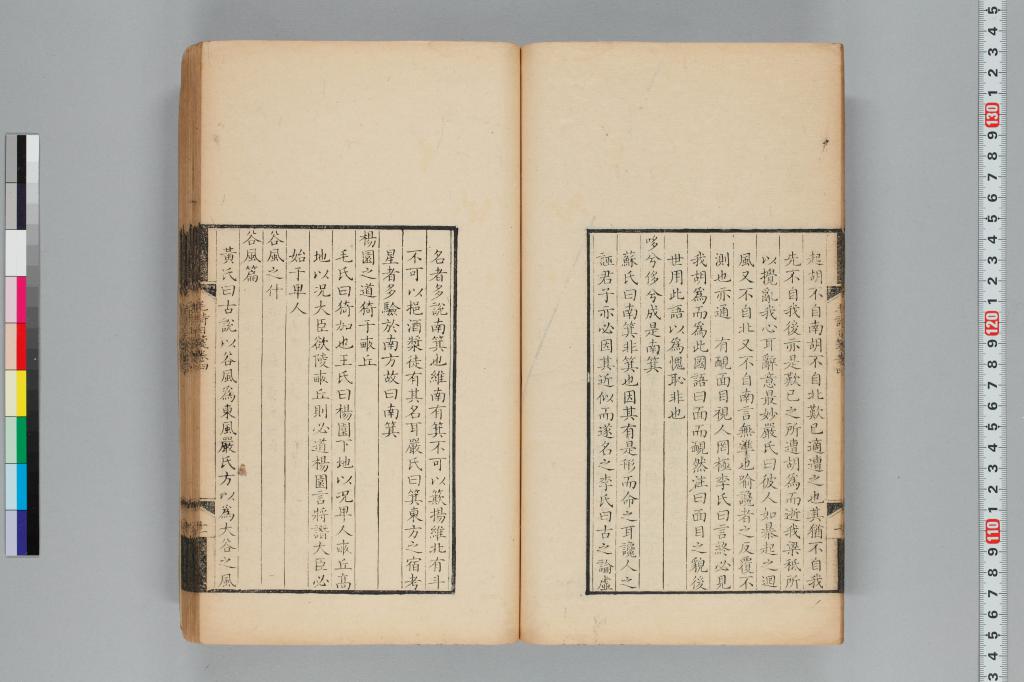 起胡不自南胡不自北歎已適遭之也其猶不自我
先不自我後亦是歎已之所遭胡為而逝我梁祗所
以攪亂我心耳辭意最妙嚴氏曰彼人如暴起之迴
風又不自北又不自南言無準也喻讒者之反覆不
測也亦通 有靦面目視人罔極李氏曰言終必見
我胡為而為此國語曰面而靦然注曰面目之貌後
世用此語以為愧恥非也
哆兮侈兮成是南箕
蘇氏曰南箕非箕也因其有是形而命之耳讒人之
誣君子亦必因其近似而遂名之李氏曰古之論虛
名者多說南箕也維南有箕不可以簸揚維北有斗
不可以挹酒漿徒有其名耳嚴氏曰箕東方之宿考
星者多驗於南方故曰南箕
楊園之道猗于畝丘
毛氏曰猗加也王氏曰楊園下地以况卑人畝丘高
地以况大臣欲陵畝丘則必道楊園言將譖大臣必
始于卑人
谷風之什
谷風篇
黃氏曰古說以谷風為東風嚴氏方以為大谷之風
130
120
110